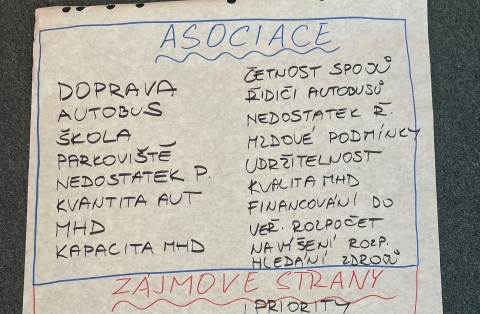 ASOCIACE
DOPRAVA
AUTOBUS
ŠKOLA
PARKOVIŠTĚ
NEDOSTATEK P.
KVANTITA AUT
MHD
KAPACITA MHD
ČETNOST SPOJŮ
ŘIDIČI AUTOBUSŮ
NEDOSTATEK Ř.
MZDOVÉ PODMÍNKY
UDRŽITELNOST
KVALITA MHD
FINANCOVÁNÍ DO
VEŘ. ROZPOČET
NAVÝŠENÍ ROZP.
HLEDÁNÍ ZDROJŮ
ZÁJMOVÉ STRANY
PRIORITY